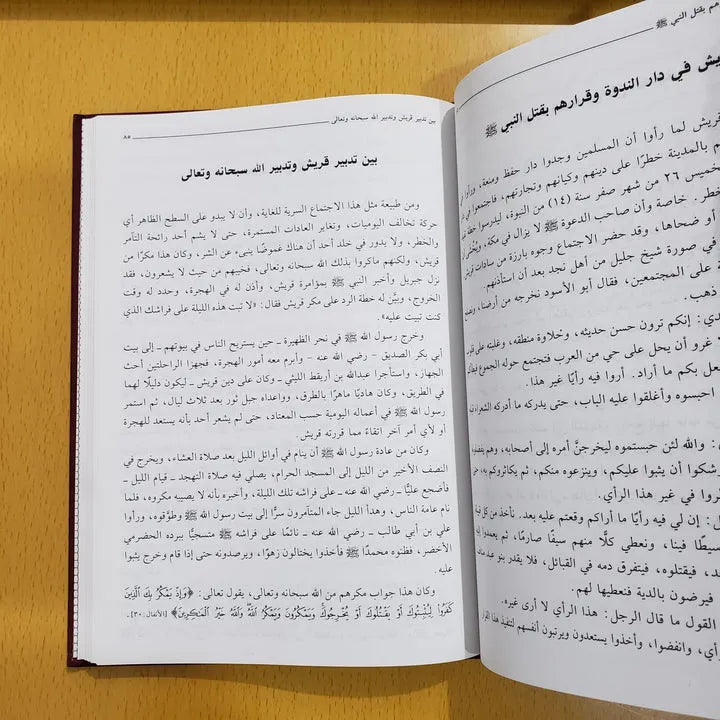 هم بقتل النبي ﷺ
يش في دار الندوة وقرارهم بقتل النبي ﷺ
قريش لما رأوا أن المسلمين وجدوا دار حفظ ومنعة، ورأوا
م بالمدينة خطرًا على دينهم وكيانهم وتجارتهم، فاجتمعوا في
خميس ٢٦ من شهر صفر سنة (١٤) من النبوة، ليدرسوا خطة
لخطر. خاصة وأن صاحب الدعوة ﷺ لا يزال في مكة،
أو ضحاها، وقد حضر الاجتماع وجوه بارزة من سادات قريش
في صورة شيخ جليل من أهل نجد بعد أن استأذنهم.
ة على المجتمعين، فقال أبو الأسود نخرجه من أرضنا،
ذهب.
دي: إنكم ترون حسن حديثه، وحلاوة منطقه، وغلبته على
لا غرو أن يحل على حي من العرب فتجتمع حوله الجموع
فعل بكم ما أراد. أروا فيه رأيًا غير هذا.
احبسوه وأغلقوا عليه الباب، حتى يدركه ما أدركه الشعراء
: والله لئن حبستموه ليخرجنَّ أمره إلى أصحابه، وهم
شكوا أن يثبوا عليكم، وينزعوه منكم، ثم يكاثروكم به،
روا في غير هذا الرأي.
ل: إن لي فيه رأيًا ما أراكم وقعتم عليه بعد. نأخذ من كل
سيطًا فينا، ونعطي كلًّا منهم سيفًا صارمًا، ثم يعمدوا
د، فيقتلوه، فيتفرق دمه في القبائل، فلا يقدر بنو عبد
فيرضون بالدية فنعطيها لهم.
القول ما قال الرجل: هذا الرأي لا أرى غيره.
رأي، وانفضوا، وأخذوا يستعدون ويرتبون أنفسهم لتنفيذ هذا
بين تدبير قريش وتدبير الله سبحانه وتعالى ٨٥
بين تدبير قريش وتدبير الله سبحانه وتعالى
ومن طبيعة مثل هذا الاجتماع السرية للغاية، وأن لا يبدو على السطح الظاهر أي
حركة تخالف اليوميات، وتغاير العادات المستمرة، حتى لا يشم أحد رائحة التآمر
والخطر، ولا يدور في خلد أحد أن هناك غموضًا ينبئ عن الشر، وكان هذا مكرًا من
قريش، ولكنهم ماكروا بذلك الله سبحانه وتعالى، فخيبهم من حيث لا يشعرون، فقد
نزل جبريل وأخبر النبي ﷺ بمؤامرة قريش، وأذن له في الهجرة، وحدد له وقت
الخروج، وبيَّن له خطة الرد على مكر قريش فقال: «لا تبت هذه الليلة على فراشك الذي
كنت تبيت عليه».
وخرج رسول الله ﷺ في نحر الظهيرة ــ حين يستريح الناس في بيوتهم ــ إلى بيت
أبي بكر الصديق - رضي الله عنه - وأبرم معه أمور الهجرة، فجهزا الراحلتين أحث
الجهاز، واستأجرا عبدالله بن أريقط الليثي ــ وكان على دين قريش ــ ليكون دليلًا لهما
في الطريق، وكان هاديًا ماهرًا بالطرق، وواعداه جبل ثور بعد ثلاث ليال، ثم استمر
رسول الله ﷺ في أعماله اليومية حسب المعتاد، حتى لم يشعر أحد بأنه يستعد للهجرة
أو لأي أمر آخر اتقاءً مما قررته قريش.
وكان من عادة رسول الله ﷺ أن ينام في أوائل الليل بعد صلاة العشاء، ويخرج في
النصف الأخير من الليل إلى المسجد الحرام، يصلي فيه صلاة التهجد ـ قيام الليل ـ
فأضجع عليًّا ــ رضي الله عنه ــ على فراشه تلك الليلة، وأخبره بأنه لا يصيبه مكروه، فلما
نام عامة الناس، وهدأ الليل جاء المتآمرون سرًّا إلى بيت رسول الله ﷺ وطوَّقوه، ورأوا
علي بن أبي طالب ــ رضي الله عنه ــ نائمًا على فراشه ﷺ متسجيًّا ببرده الحضرمي
الأخضر، فظنوه محمدًا ﷺ فأخذوا يختالون زهوًا، ويرصدونه حتى إذا قام وخرج يثبوا
عليه.
وكان هذا جواب مكرهم من الله سبحانه وتعالى، يقول تعالى: ﴿وَإِذْ يَمْكُرُ بِكَ ٱلَّذِينَ
كَفَرُوا۟ لِيُثْبِتُوكَ أَوْ يَقْتُلُوكَ أَوْ يُخْرِجُوكَ وَيَمْكُرُونَ وَيَمْكُرُ ٱللَّهُ وَٱللَّهُ خَيْرُ ٱلْمَٰكِرِينَ﴾ [الأنفال: ٣٠].